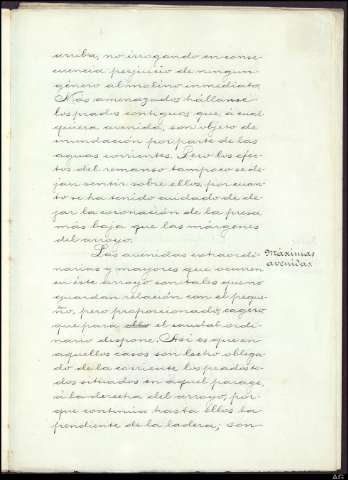 arriba, no irrogando en conse-
cuencia perjuicio de ningun
género al molino inmediato.
Más amenazados hállanse
los prados contiguos que, á cual
quiera avenida, son objeto de
inundación por parte de las
aguas corrientes. Pero los efec-
tos del remanso tampoco se de-
jan sentir sobre ellos, por cuan-
to se ha tenido cuidado de de-
jar la coronación de la presa
más baja que las márgenes
del arroyo.
Las avenidas extraordi-
narias y mayores que ocurren
en este arroyo son tales que no
guardan relación con el peque-
ño, pero proporcionado, cagero
que para el caudal ordi-
nario dispone. Así es que en
aquellos casos son lecho obliga-
do de la corriente los prados to-
dos situados en aquel parage,
á la derecha del arroyo, por-
que continúa hasta ellos la
pendiente de la ladera; son
Máximas
avenidas.
AG